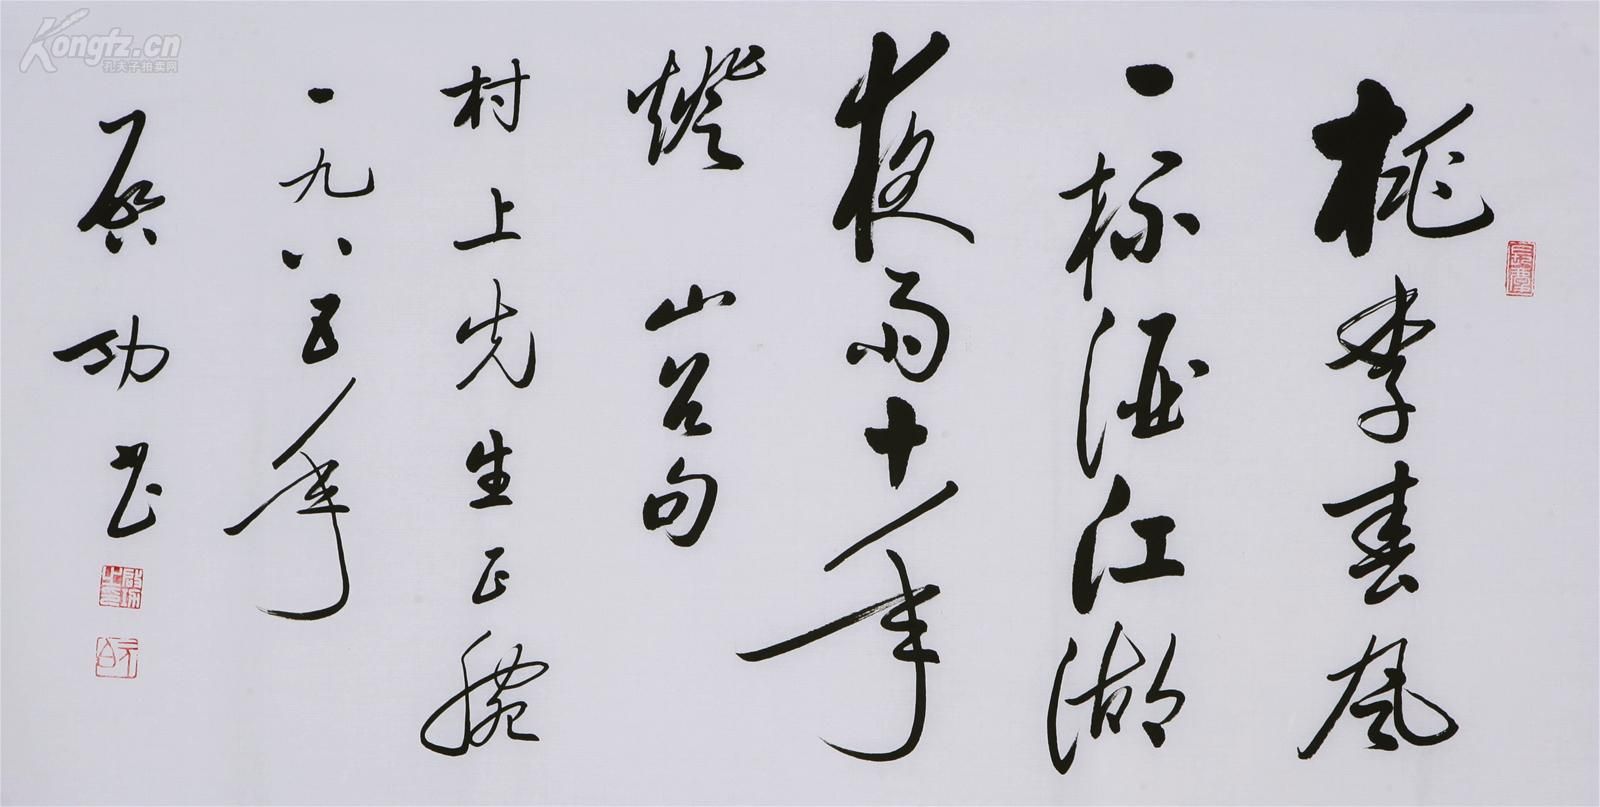 桃李春風
一杯酒江湖
夜雨十年
燈 山谷句
村上先生正腕
一九八五年
启功书
Kongfz.cn
孔夫子拍卖网